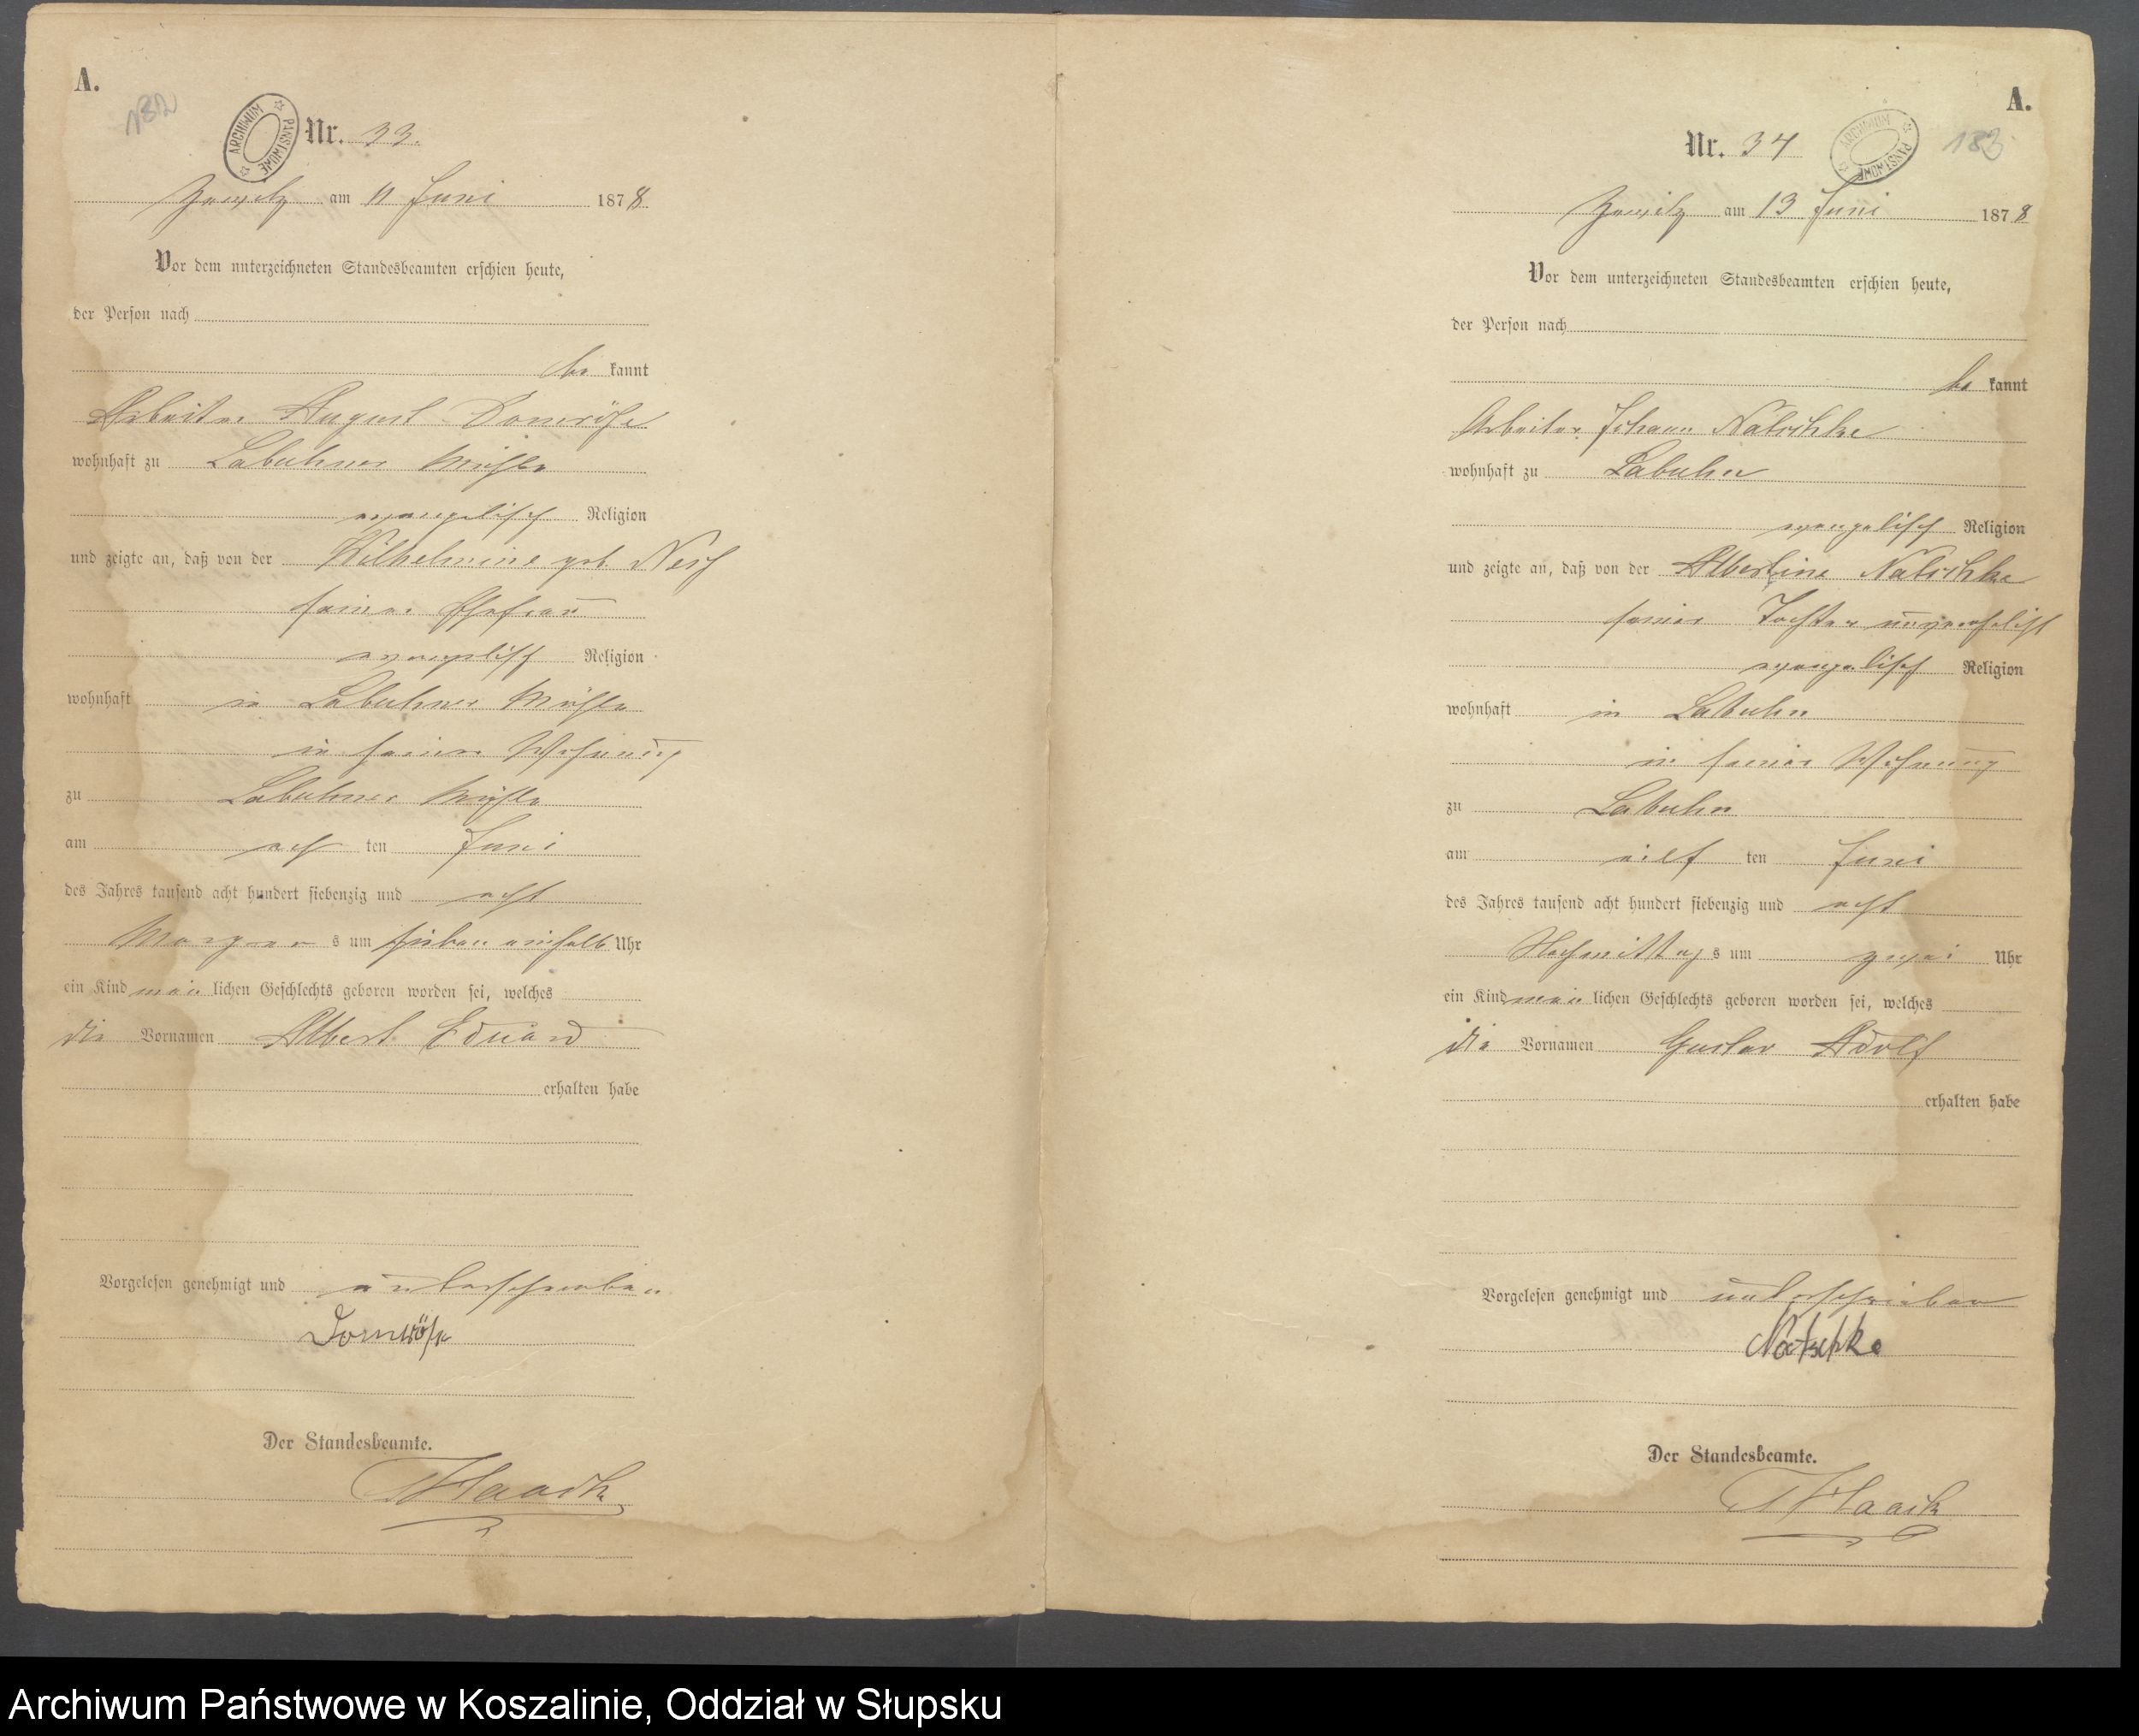 A.
132
ARCHIWUM PAŃSTWOWE
Nr. 33.
Zewitz am 11 Juni 1878
Vor dem unterzeichneten Standesbeamten erschien heute,
der Person nach
be kannt
Arbeiter August Domröse
wohnhaft zu Labuhner Mühle
evangelisch Religion
und zeigte an, daß von der Wilhelmine geb.
seiner Ehefrau
evangelisch Religion
wohnhaft in Labuhner Mühle
in seiner Wohnung
zu Labuhner Mühle
am ach ten Juni
des Jahres tausend acht hundert siebenzig und acht
Morgen s um sieben einhalb Uhr
ein Kind män lichen Geschlechts geboren worden sei, welches
die Vornamen Albert Eduard
erhalten habe
Vorgelesen genehmigt und unterschrieben
Domröse
Der Standesbeamte.
Haack
A.
Nr. 34
ARCHIWUM PAŃSTWOWE
133
Zewitz am 13 Juni 1878
Vor dem unterzeichneten Standesbeamten erschien heute,
der Person nach
be kannt
Arbeiter Johann Natschke
wohnhaft zu Labuhn
evangelisch Religion
und zeigte an, daß von der Albertine Natschke
seiner Tochter unverehelicht
evangelisch Religion
wohnhaft in Labuhn
in seiner Wohnung
zu Labuhn
am eilf ten Juni
des Jahres tausend acht hundert siebenzig und acht
Nachmittags um zwei Uhr
ein Kind män lichen Geschlechts geboren worden sei, welches
die Vornamen Gustav Adolf
erhalten habe
Vorgelesen genehmigt und unterschrieben
Natschke
Der Standesbeamte.
Haack
Archiwum Państwowe w Koszalinie, Oddział w Słupsku